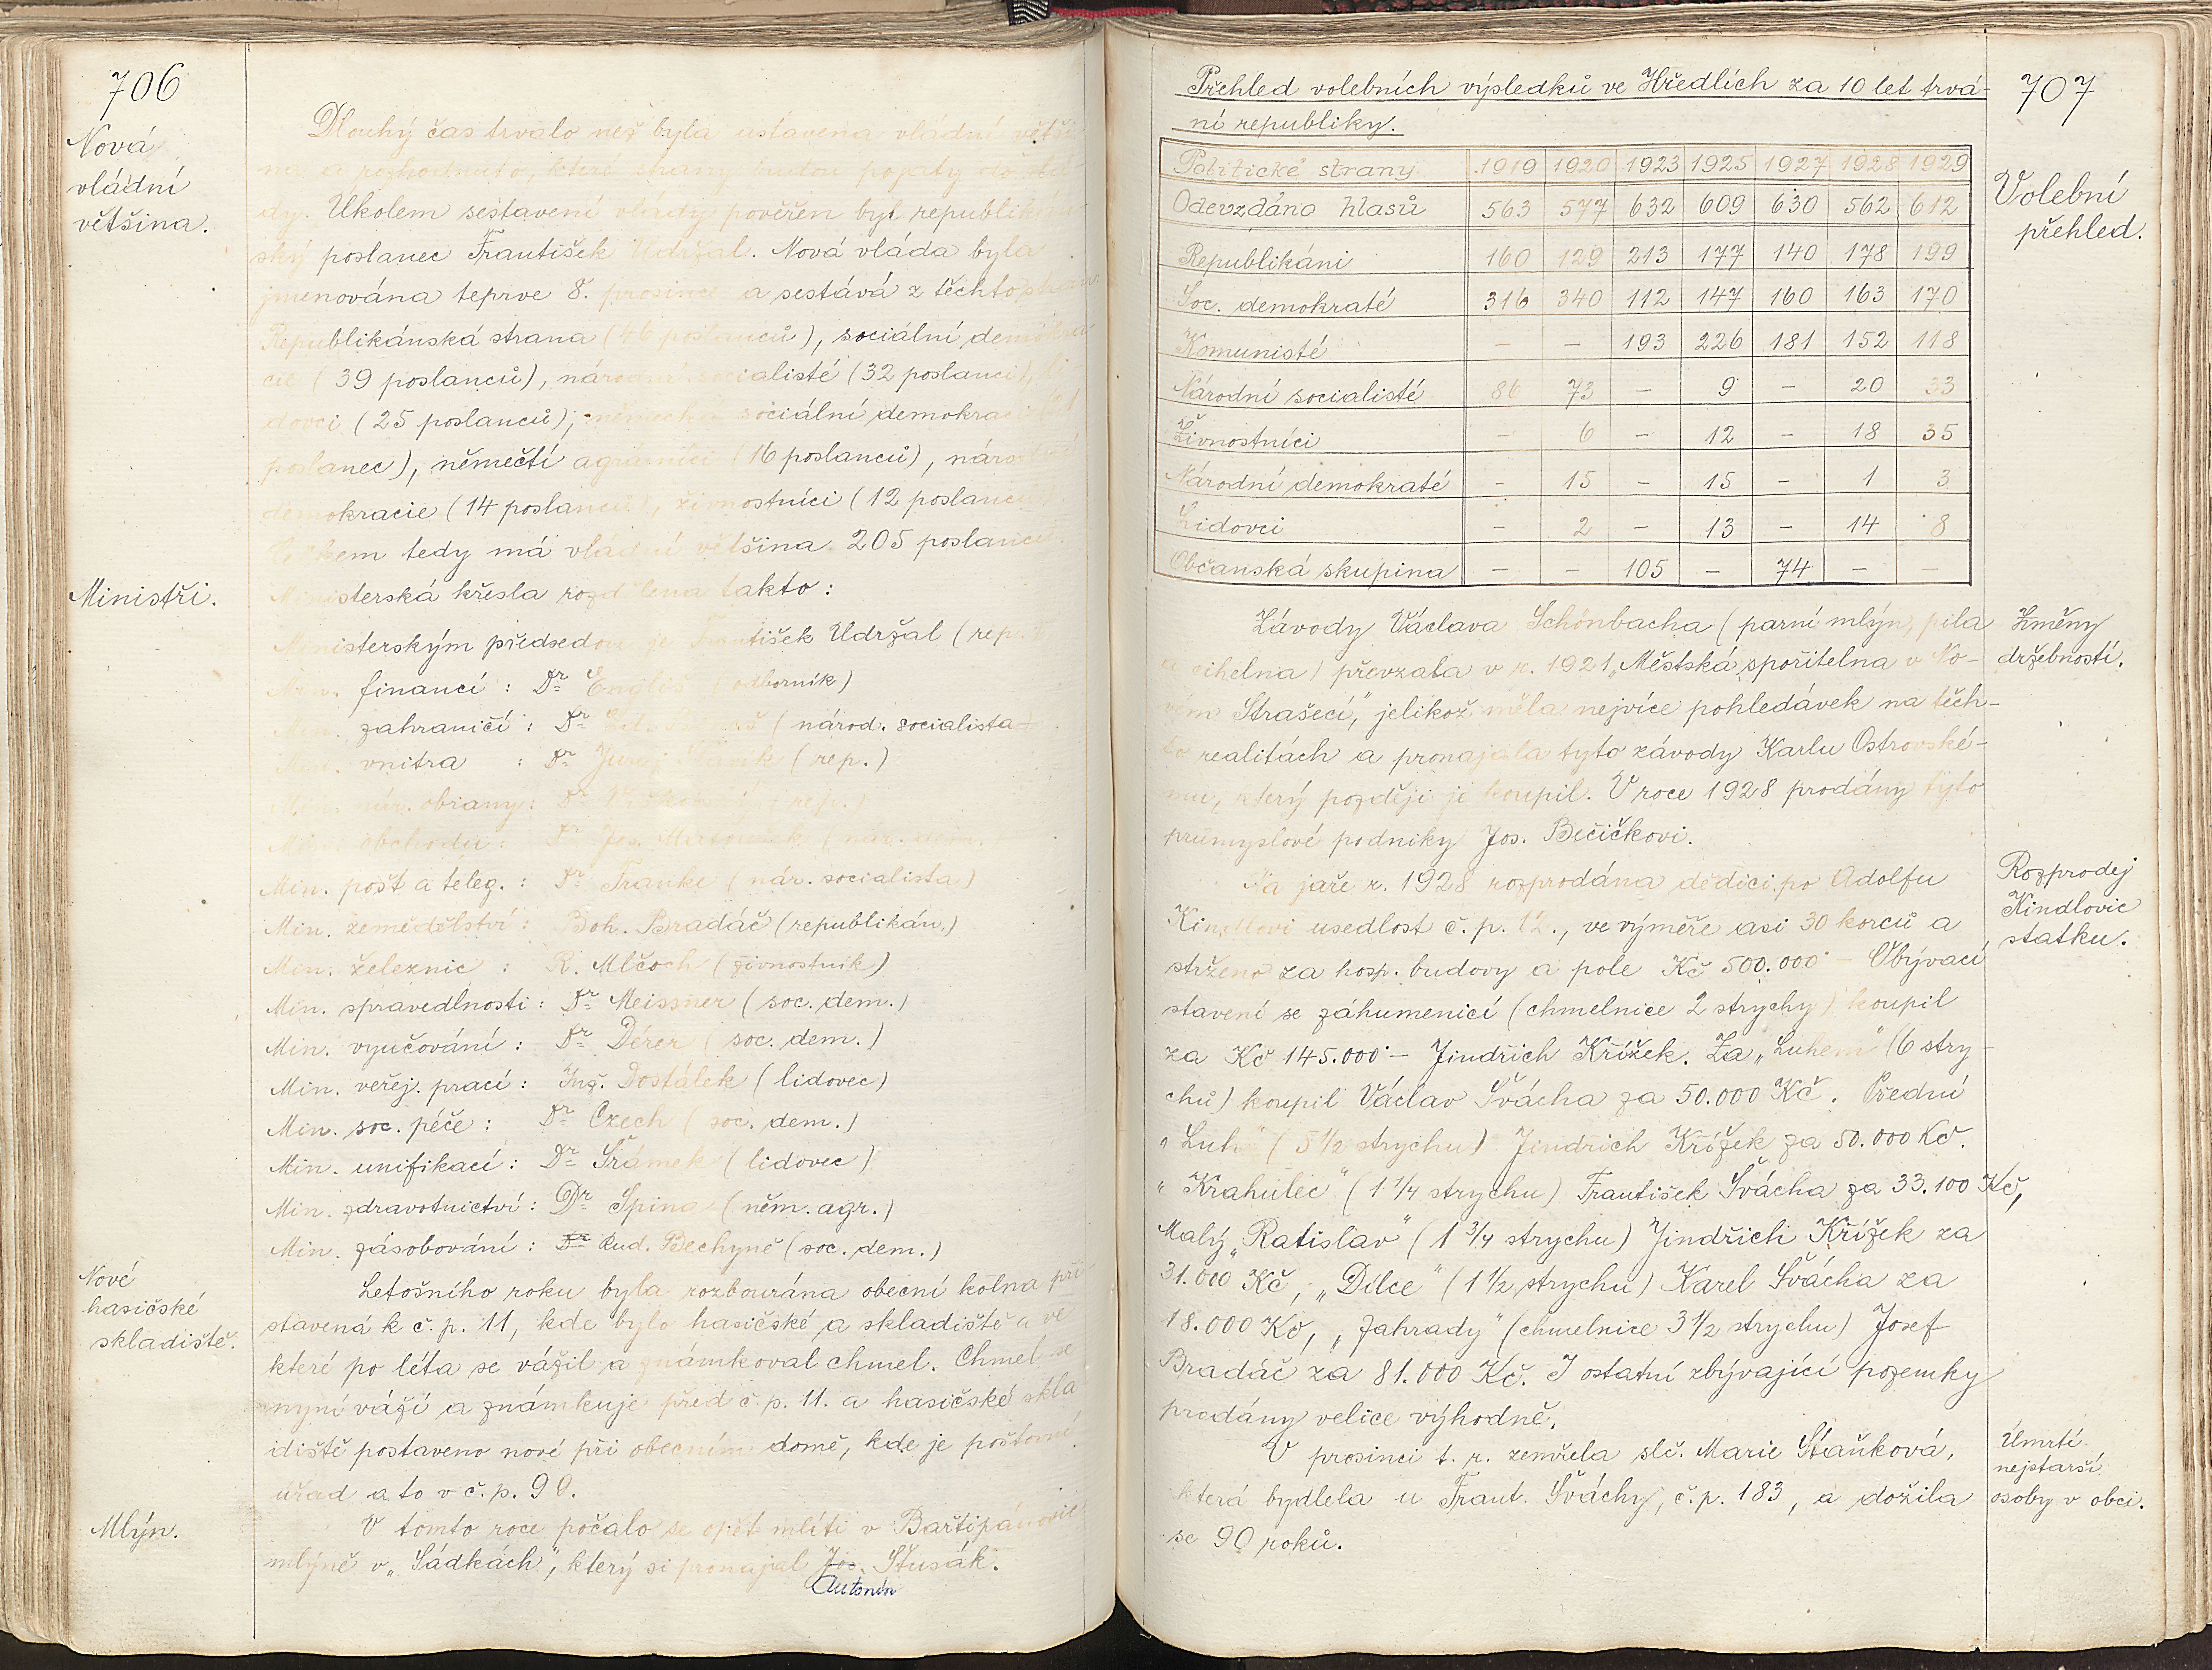 706
Nová
vládní
většina.
Dlouhý čas trvalo než byla ustavena vládní větši-
na a rozhodnuto, které strany budou pojaty do vlá-
dy. Úkolem sestavení vlády pověřen byl republikán-
ský poslanec František Udržal. Nová vláda byla
jmenována teprve 8. prosince a sestává z těchto stran:
Republikánská strana (46 poslanců), sociální demokra-
cie (39 poslanců), národní socialisté (32 poslanci), li-
dovci (25 poslanců), německá sociální demokracie (21
poslanec), němečtí agrárníci (16 poslanců), národní
demokracie (14 poslanců), živnostníci (12 poslanců).
Celkem tedy má vládní většina 205 poslanců.
Ministři.
Ministerská křesla rozdělena takto:
Ministerským předsedou je František Udržal (rep.)
Min. financí: Dr Engliš odborník)
Min. zahraničí: Dr Ed. Beneš (národ. socialista
Min. vnitra : Dr Juraj Slávik (rep.)
Min. nár. obrany: Dr (rep.)
Min. obchodu: Dr Jos. Matoušek (nár. dem.
Min. pošt a teleg.: Dr Franke (nár. socialista)
Min. zemědělství: Boh. Bradáč (republikán.)
Min. železnic : R. Mlčoch (živnostník)
Min. spravedlnosti: Dr Meissner (soc. dem.)
Min. vyučování: Dr Dérer (soc. dem.)
Min. veřej. prací: Ing. Dostálek (lidovec)
Min. soc. péče: Dr Czech (soc. dem.)
Min. unifikací: Dr Šrámek (lidovec)
Min. zdravotnictví: Dr Spina (něm. agr.)
Min. zásobování: Dr Rud. Bechyně (soc. dem.)
Nové
hasičské
skladiště.
Letošního roku byla rozbourána obecní kolna při-
stavená k č. p. 11, kde bylo hasičské a skladiště a ve
které po léta se vážil a známkoval chmel. Chmel se
nyní váží a známkuje před č. p. 11. a hasičské skla-
diště postaveno nové při obecním domě, kde je poštovní
úřad a to v č. p. 90.
Mlýn.
V tomto roce počalo se opět mlíti v Bartipánovic
mlýně v „Sádkách", který si pronajal Jos. Stusák.
Antonín
707
Přehled volebních výsledků ve Hředlích za 10 let trvá-
ní republiky.
Volební
přehled.
Politické strany 1919 1920 1923 1925 1927 1928 1929
Odevzdáno hlasů 563 577 632 609 630 562 612
Republikáni 160 129 213 177 140 178 199
Soc. demokraté 316 340 112 147 160 163 170
Komunisté – – 193 226 181 152 118
Národní socialisté 86 73 – 9 – 20 33
Živnostníci – 6 – 12 – 18 35
Národní demokraté – 15 – 15 – 1 3
Lidovci – 2 – 13 – 14 8
Občanská skupina – – 105 – 74 – –
Změny
držebností.
Závody Václava Schönbacha (parní mlýn, pila
a cihelna) převzala v r. 1921 „Městská spořitelna v No-
vém Strašecí," jelikož měla nejvíce pohledávek na těch-
to realitách a pronajala tyto závody Karlu Ostrovské-
mu, který později je koupil. V roce 1928 prodány tyto
průmyslové podniky Jos. Bečičkovi.
Rozprodej
Kindlovic
statku.
Na jaře r. 1928 rozprodána dědici po Adolfu
Kindlovi usedlost č. p. 12., ve výměře asi 30 korců a
strženo za hosp. budovy a pole Kč 500.000 – Obývací
stavení se záhumenicí (chmelnice 2 strychy) koupil
za Kč 145.000·– Jindřich Křížek. Za „Luhem" (6 stry-
chů) koupil Václav Švácha za 50.000 Kč. Přední
„Luh" (5 1/2 strychu) Jindřich Křížek za 50.000 Kč.
„Krahulec" (1 1/4 strychu) František Švácha za 33.100 Kč,
Malý „Ratislav" (1 3/4 strychu) Jindřich Křížek za
31.000 Kč, „Dílce" (1 1/2 strychu) Karel Švácha za
18.000 Kč, „Zahrady" (chmelnice 3 1/2 strychu) Josef
Bradáč za 81.000 Kč. I ostatní zbývající pozemky
prodány velice výhodně.
Úmrtí
nejstarší
osoby v obci.
V prosinci t. r. zemřela slč. Marie Staňková,
která bydlela u Frant. Šváchy, č. p. 183, a dožila
se 90 roků.